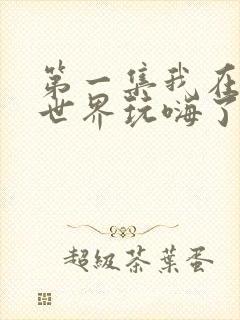 第一集我在
世界玩嗨了
超級茶葉蛋